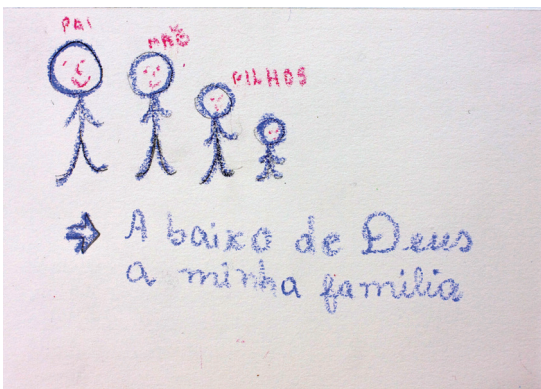 PAI
MÃE
FILHOS
A baixo de Deus
a minha família